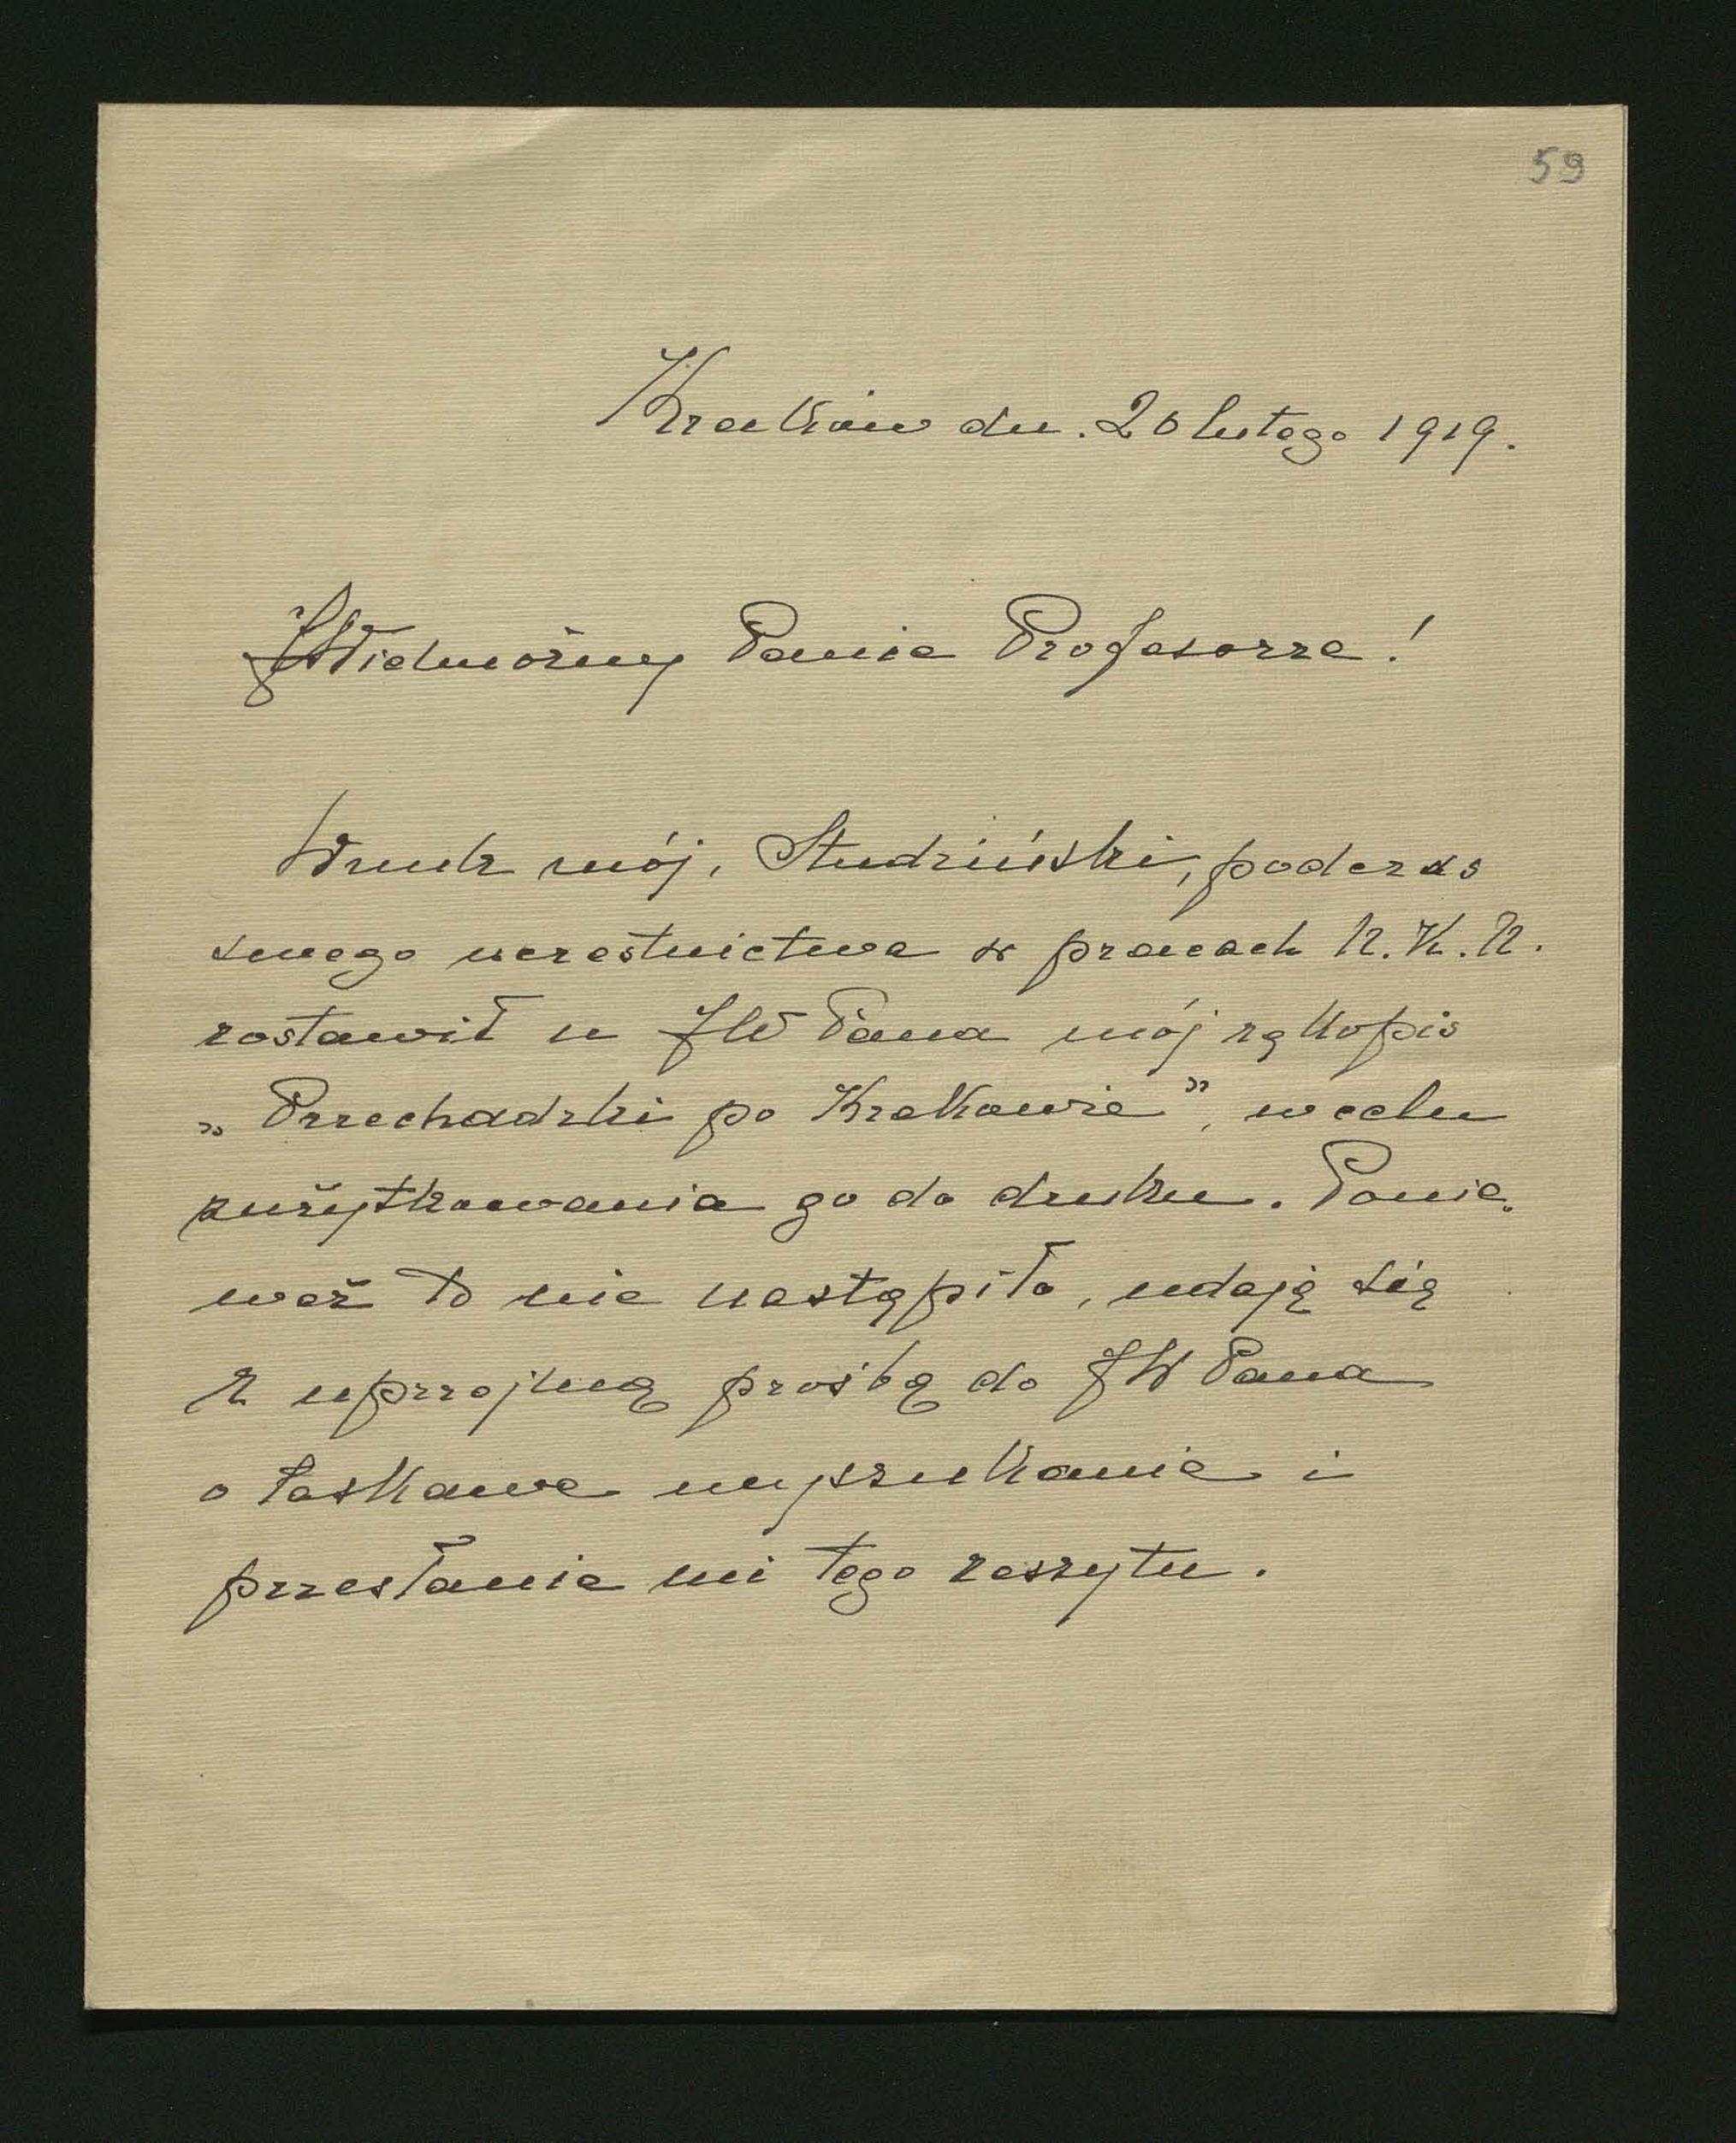 59
Kraków dn. 20 lutego 1919.
JWielmożny Panie Profesorze!
Wnuk mój, Studziński, podczas
swego uczestnictwa w pracach N.K.N.
zostawił u JW Pana mój rękopis
„Przechadzki po Krakowie”, w celu
zużytkowania go do druku. Ponie„
waż to nie nastąpiło, udaję się
z uprzejmą prośbą do JW Pana
o łaskawe wyszukanie i
przesłanie mi tego zeszytu.